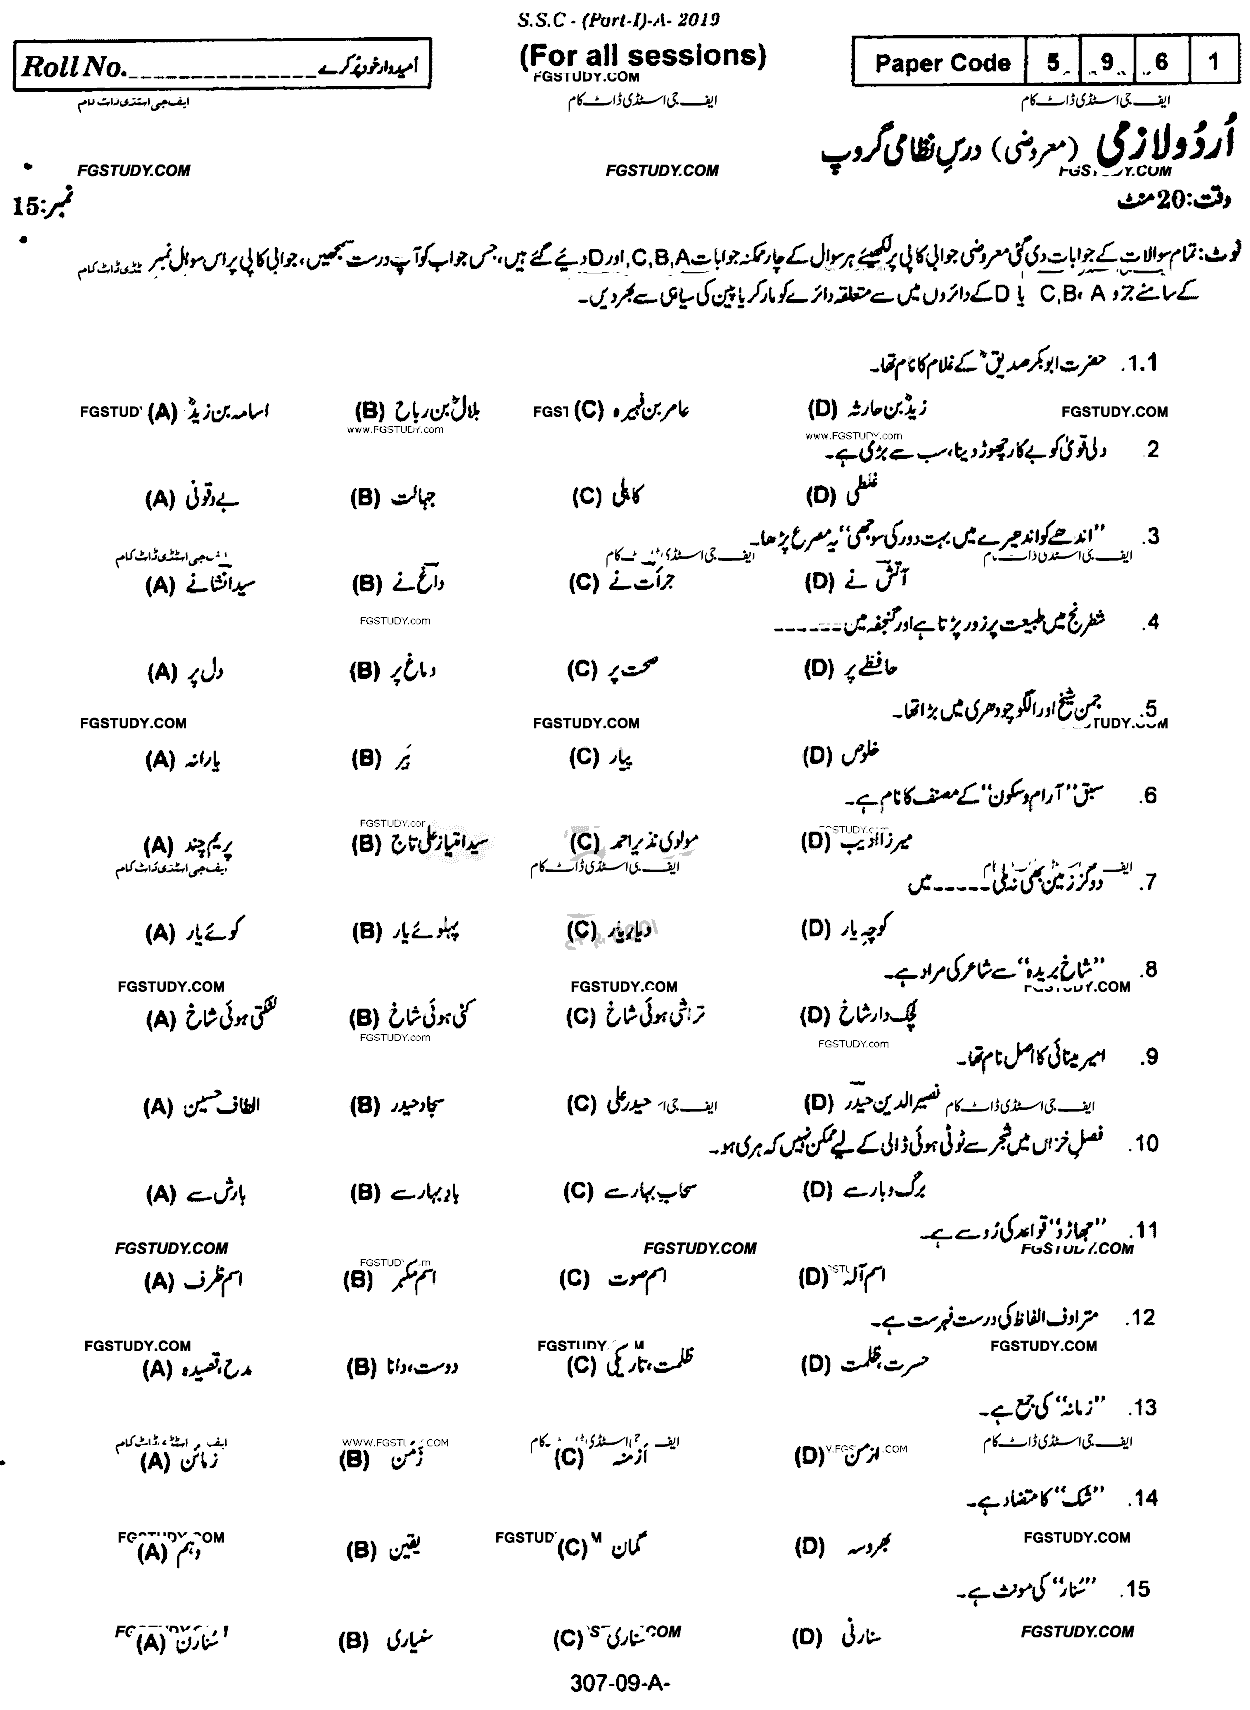 S.S.C - (Part-I)-A- 2019
Roll No. ________________ امیدوار خود پُر کرے
(For all sessions)
FGSTUDY.COM
Paper Code 5 9 6 1
ایف جی اسٹڈی ڈاٹ کام ایف جی اسٹڈی ڈاٹ کام ایف جی اسٹڈی ڈاٹ کام
اُردُو لازمی (معروضی) درسِ نظامی گروپ
FGSTUDY.COM FGSTUDY.COM
وقت: 20 منٹ نمبر: 15
نوٹ: تمام سوالات کے جوابات دی گئی معروضی جوابی کاپی پر لکھیئے ہر سوال کے چار ممکنہ جوابات C,B,A, اور D دیے گئے ہیں، جس جواب کو آپ درست سمجھیں، جوابی کاپی پر اس سوال نمبر
کے سامنے دیے A، C,B یا D کے دائروں میں سے متعلقہ دائرے کو مارکر یا پین کی سیاہی سے بھر دیں۔
1.1. حضرت ابوبکر صدیقؓ کے غلام کا نام تھا۔
(A) اسامہ بن زیدؓ (B) بلالؓ بن رباح (C) عامر بن فہیرہ (D) زیدؓ بن حارثہ FGSTUDY.COM
www.FGSTUDY.com www.FGSTUDY.com
2 دلی قویٰ کو بے کار چھوڑ دینا، سب سے بڑی ہے۔
(A) بے وقوفی (B) جہالت (C) کاہلی (D) غلطی
3. "اندھے کو اندھیرے میں بہت دور کی سوجھی" یہ مصرع پڑھا۔
ایف جی اسٹڈی ڈاٹ کام
(A) سید انشا نے (B) داغ نے (C) جرأت نے (D) آتش نے
FGSTUDY.com
4. شطرنج میں طبیعت پر زور پڑتا ہے اور گنجفہ میں ------
(A) دل پر (B) دماغ پر (C) صحت پر (D) حافظے پر
5. جمن شیخ اور الگو چودھری میں بڑا تھا۔
FGSTUDY.COM FGSTUDY.COM
(A) یارانہ (B) بَیر (C) پیار (D) خلوص
6. سبق "آرام و سکون" کے مصنف کا نام ہے۔
(A) پریم چند (B) سید امتیاز علی تاج (C) مولوی نذیر احمد (D) میرزا ادیب
ایف جی اسٹڈی ڈاٹ کام ایف جی اسٹڈی ڈاٹ کام
7. دو گز زمین بھی نہ ملی ----- میں
(A) کوئے یار (B) پہلوئے یار (C) دیارِ یار (D) کوچہ یار
8. "شاخِ بریدہ" سے شاعر کی مراد ہے۔
FGSTUDY.COM FGSTUDY.COM
(A) لٹکتی ہوئی شاخ (B) کٹی ہوئی شاخ (C) تراشی ہوئی شاخ (D) لچک دار شاخ
FGSTUDY.com FGSTUDY.com
9. امیر مینائی کا اصل نام تھا۔
(A) الطاف حسین (B) سجاد حیدر (C) حیدر علی (D) نصیر الدین حیدر ایف جی اسٹڈی ڈاٹ کام
10. فصلِ خزاں میں شجر سے ٹوٹی ہوئی ڈالی کے لیے ممکن نہیں کہ ہری ہو۔
(A) بارش سے (B) بادِ بہار سے (C) سحابِ بہار سے (D) برگ و بار سے
11. "جھاڑو" قواعد کی رُو سے ہے۔
FGSTUDY.COM FGSTUDY.COM FGSTUDY.COM
(A) اسم ظرف (B) اسم مکبر (C) اسم صوت (D) اسم آلہ
12. مترادف الفاظ کی درست فہرست ہے۔
FGSTUDY.COM FGSTUDY.COM
(A) مدح، قصیدہ (B) دوست، دانا (C) ظلمت، تاریکی (D) حسرت، ظلمت
13. "زمانہ" کی جمع ہے۔
(A) زمائن (B) زمن (C) ازمنہ (D) ازمن
14. "شک" کا متضاد ہے۔
FGSTUDY.COM
(A) وہم (B) یقین (C) گمان (D) بھروسہ
15. "سُنار" کی مونث ہے۔
(A) سُنارن (B) سنیاری (C) سناری (D) سنارنی FGSTUDY.COM
307-09-A-